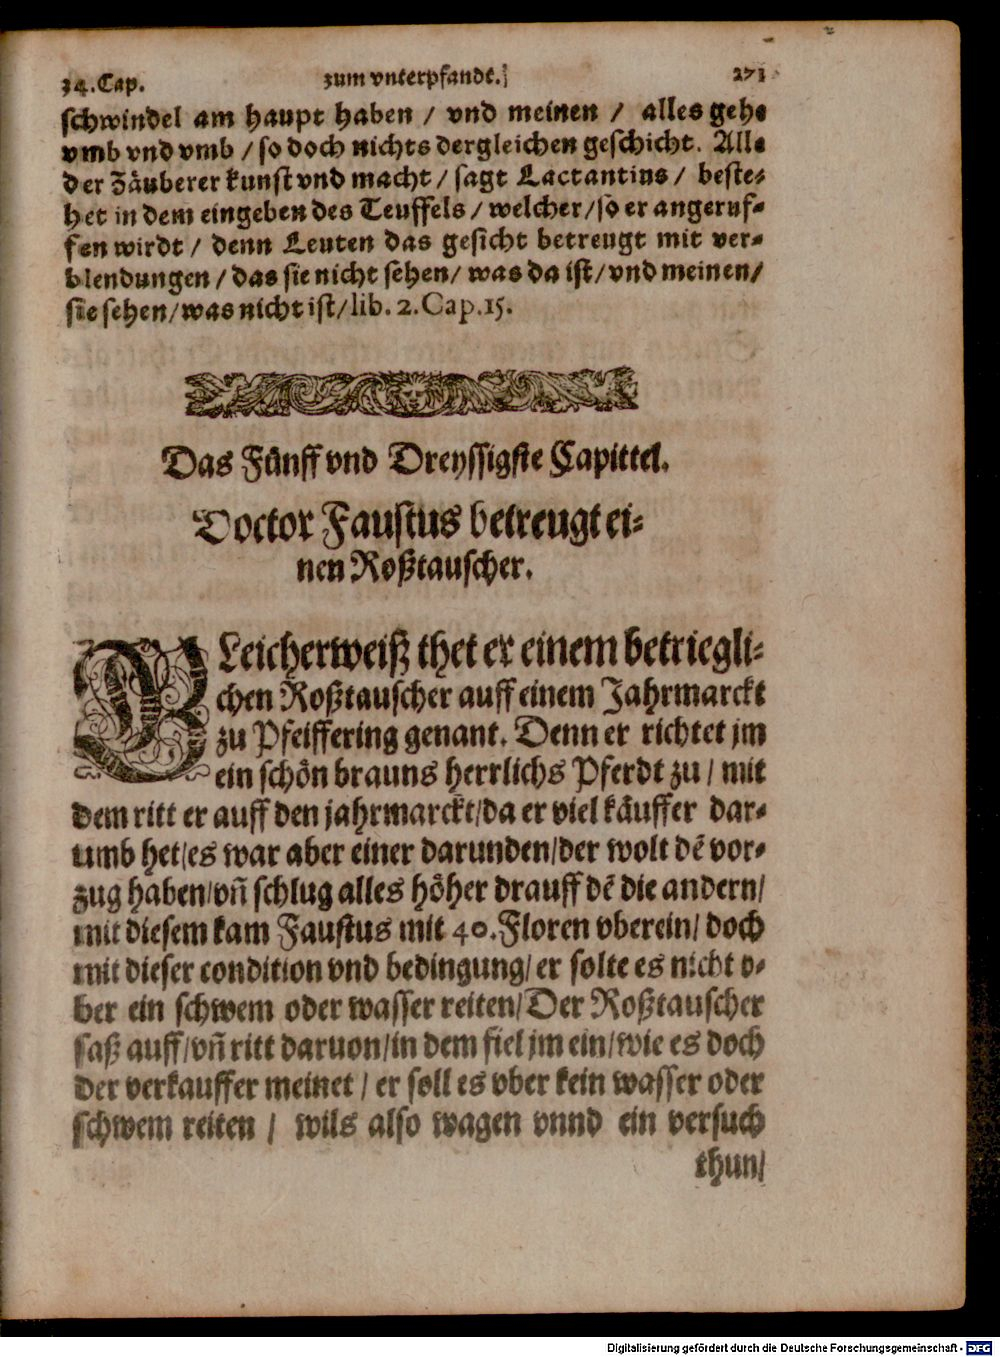 34.Cap. zum vnterpfandt. 271
schwindel am haupt haben / vnd meinen / alles gehe
vmb vnd vmb / so doch nichts dergleichen geschicht. Alle
der Zäuberer kunst vnd macht / sagt Lactantius / beste-
het in dem eingeben des Teuffels / welcher / so er angeruf-
fen wirdt / denn Leuten das gesicht betreugt mit ver-
blendungen / das sie nicht sehen / was da ist / vnd meinen /
sie sehen / was nicht ist / lib. 2. Cap. 15.
Das Fünff vnd Dreyssigste Capittel.
Doctor Faustus betreugt ei-
nen Roßtauscher.
GLeicherweiß thet er einem betriegli-
chen Roßtauscher auff einem Jahrmarckt
zu Pfeiffering genant. Denn er richtet jm
ein schön brauns herrlichs Pferdt zu / mit
dem ritt er auff den jahrmarckt / da er viel käuffer dar-
umb het / es war aber einer darunden / der wolt dẽ vor-
zug haben / vñ schlug alles höher drauff dẽ die andern /
mit diesem kam Faustus mit 40. Floren vberein / doch
mit dieser condition vnd bedingung / er solte es nicht v-
ber ein schwem oder wasser reiten / Der Roßtauscher
saß auff / vñ ritt daruon / in dem fiel jm ein / wie es doch
der verkauffer meinet / er soll es vber kein wasser oder
schwem reiten / wils also wagen vnnd ein versuch
thun /
Digitalisierung gefördert durch die Deutsche Forschungsgemeinschaft - DFG